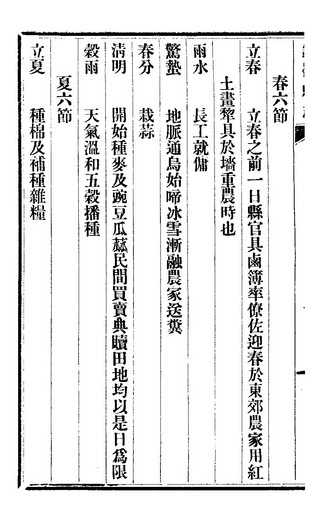 春六節
立春　立春之前一日縣官具鹵簿率僚佐迎春於東郊農家用紅
土畫犂具於墻重農時也
雨水　長工就傭
驚蟄　地脈通鳥始啼冰雪漸融農家送糞
春分　栽蒜
清明　開始種麥及豌豆瓜蓏民間買賣典贖田地均以是日爲限
穀雨　天氣溫和五穀播種
夏六節
立夏　種棉及補種雜糧